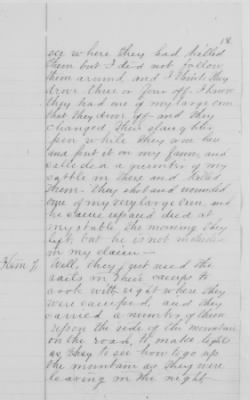 18.
see where they had killed
them but I did not follow
them around and I think they
drove three or four off. I know
they had one of my large oxen
that they drove off and they
changed their slaughter
pen while they was here
and put it on my farm, and
a quantity of my
cattle in there and killed
them - they shot and wounded
one of my very large oxen, and
he came up and died at
my stable, the morning they
left, but he is not included
in my claim -
Item 7 Well, they just used the
rails in their camps to
cook with right where they
were camped, and they
carried a number of them
upon the side of the mountain
on the road, to make light
as they to see how to go up
the mountain as they were
leaving in the night